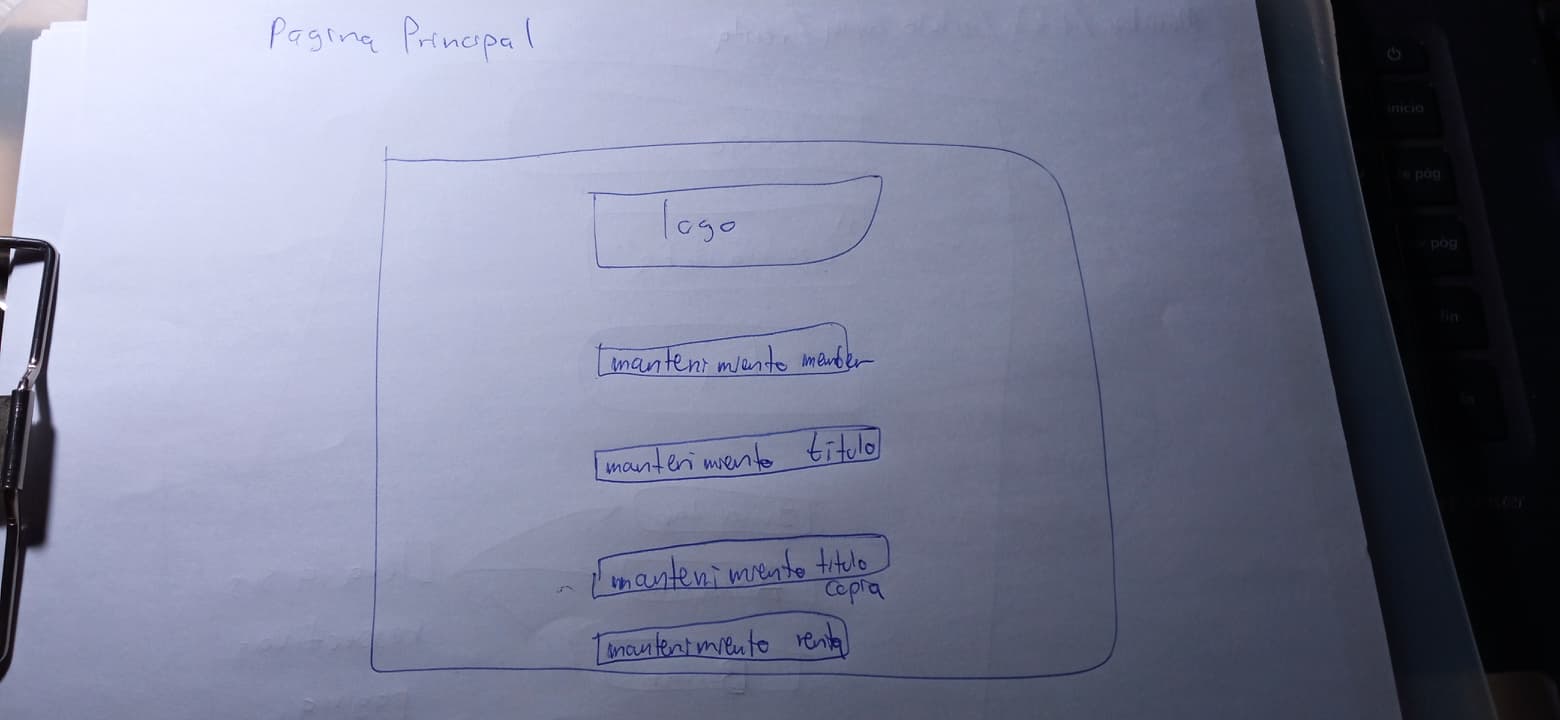 Pagina Principal
logo
mantenimiento member
mantenimiento titulo
mantenimiento titulo
copia
mantenimiento renta
inicio
pág
pág
fin